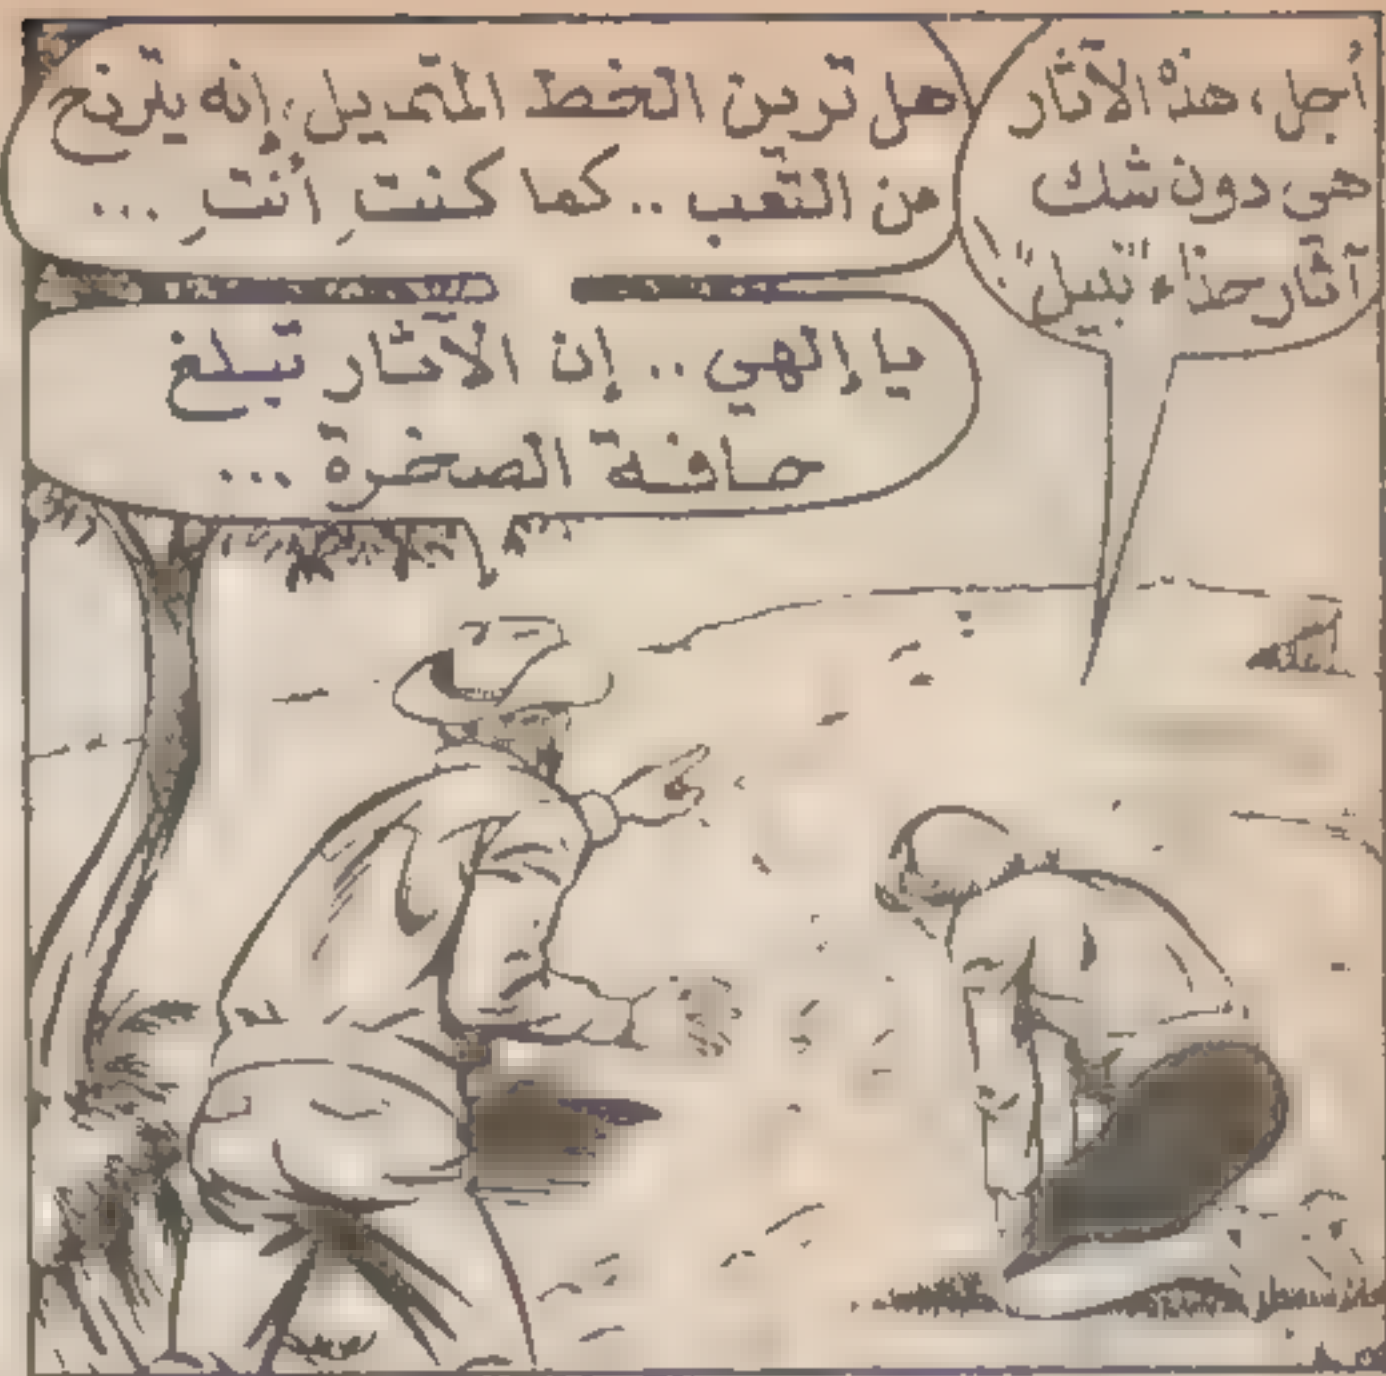 أجل، هذه الآثار
هي دون شك
آثار حذاء "نبيل" !
هل ترين الخط المتمايل، إنه يترنح
من التعب .. كما كنتِ أنتِ ...
يا إلهي .. إن الآثار تبلغ
حافة الصخرة ...